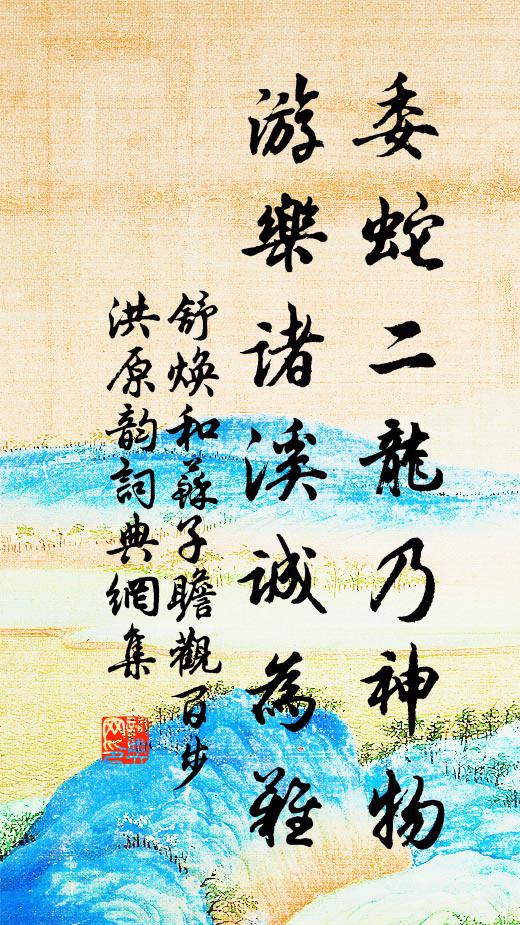 委蛇二龍乃神物
游樂諸溪誠為難
舒煥和蘇子瞻觀百步
洪原韵詞典網集